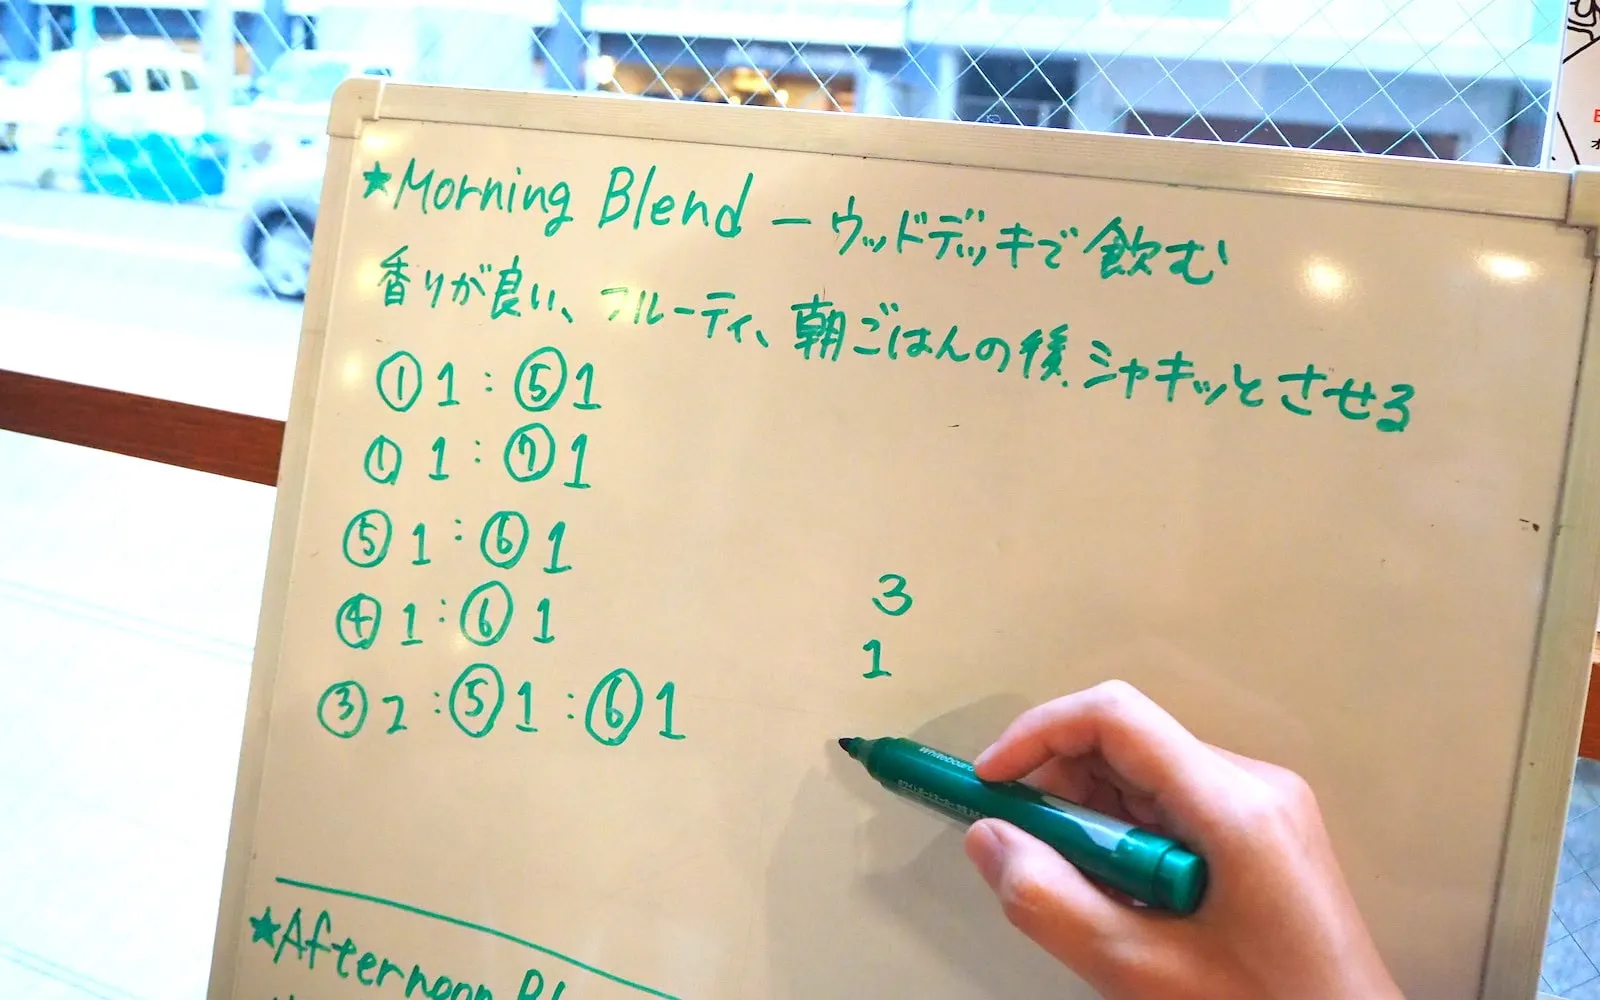 ★Morning Blend ー ウッドデッキで飲む
香りが良い、フルーティ、朝ごはんの後、シャキッとさせる
① 1 : ⑤ 1
① 1 : ⑦ 1
⑤ 1 : ⑥ 1
④ 1 : ⑥ 1
③ 2 : ⑤ 1 : ⑥ 1
3
1
whiteboard
★Afternoon Bl